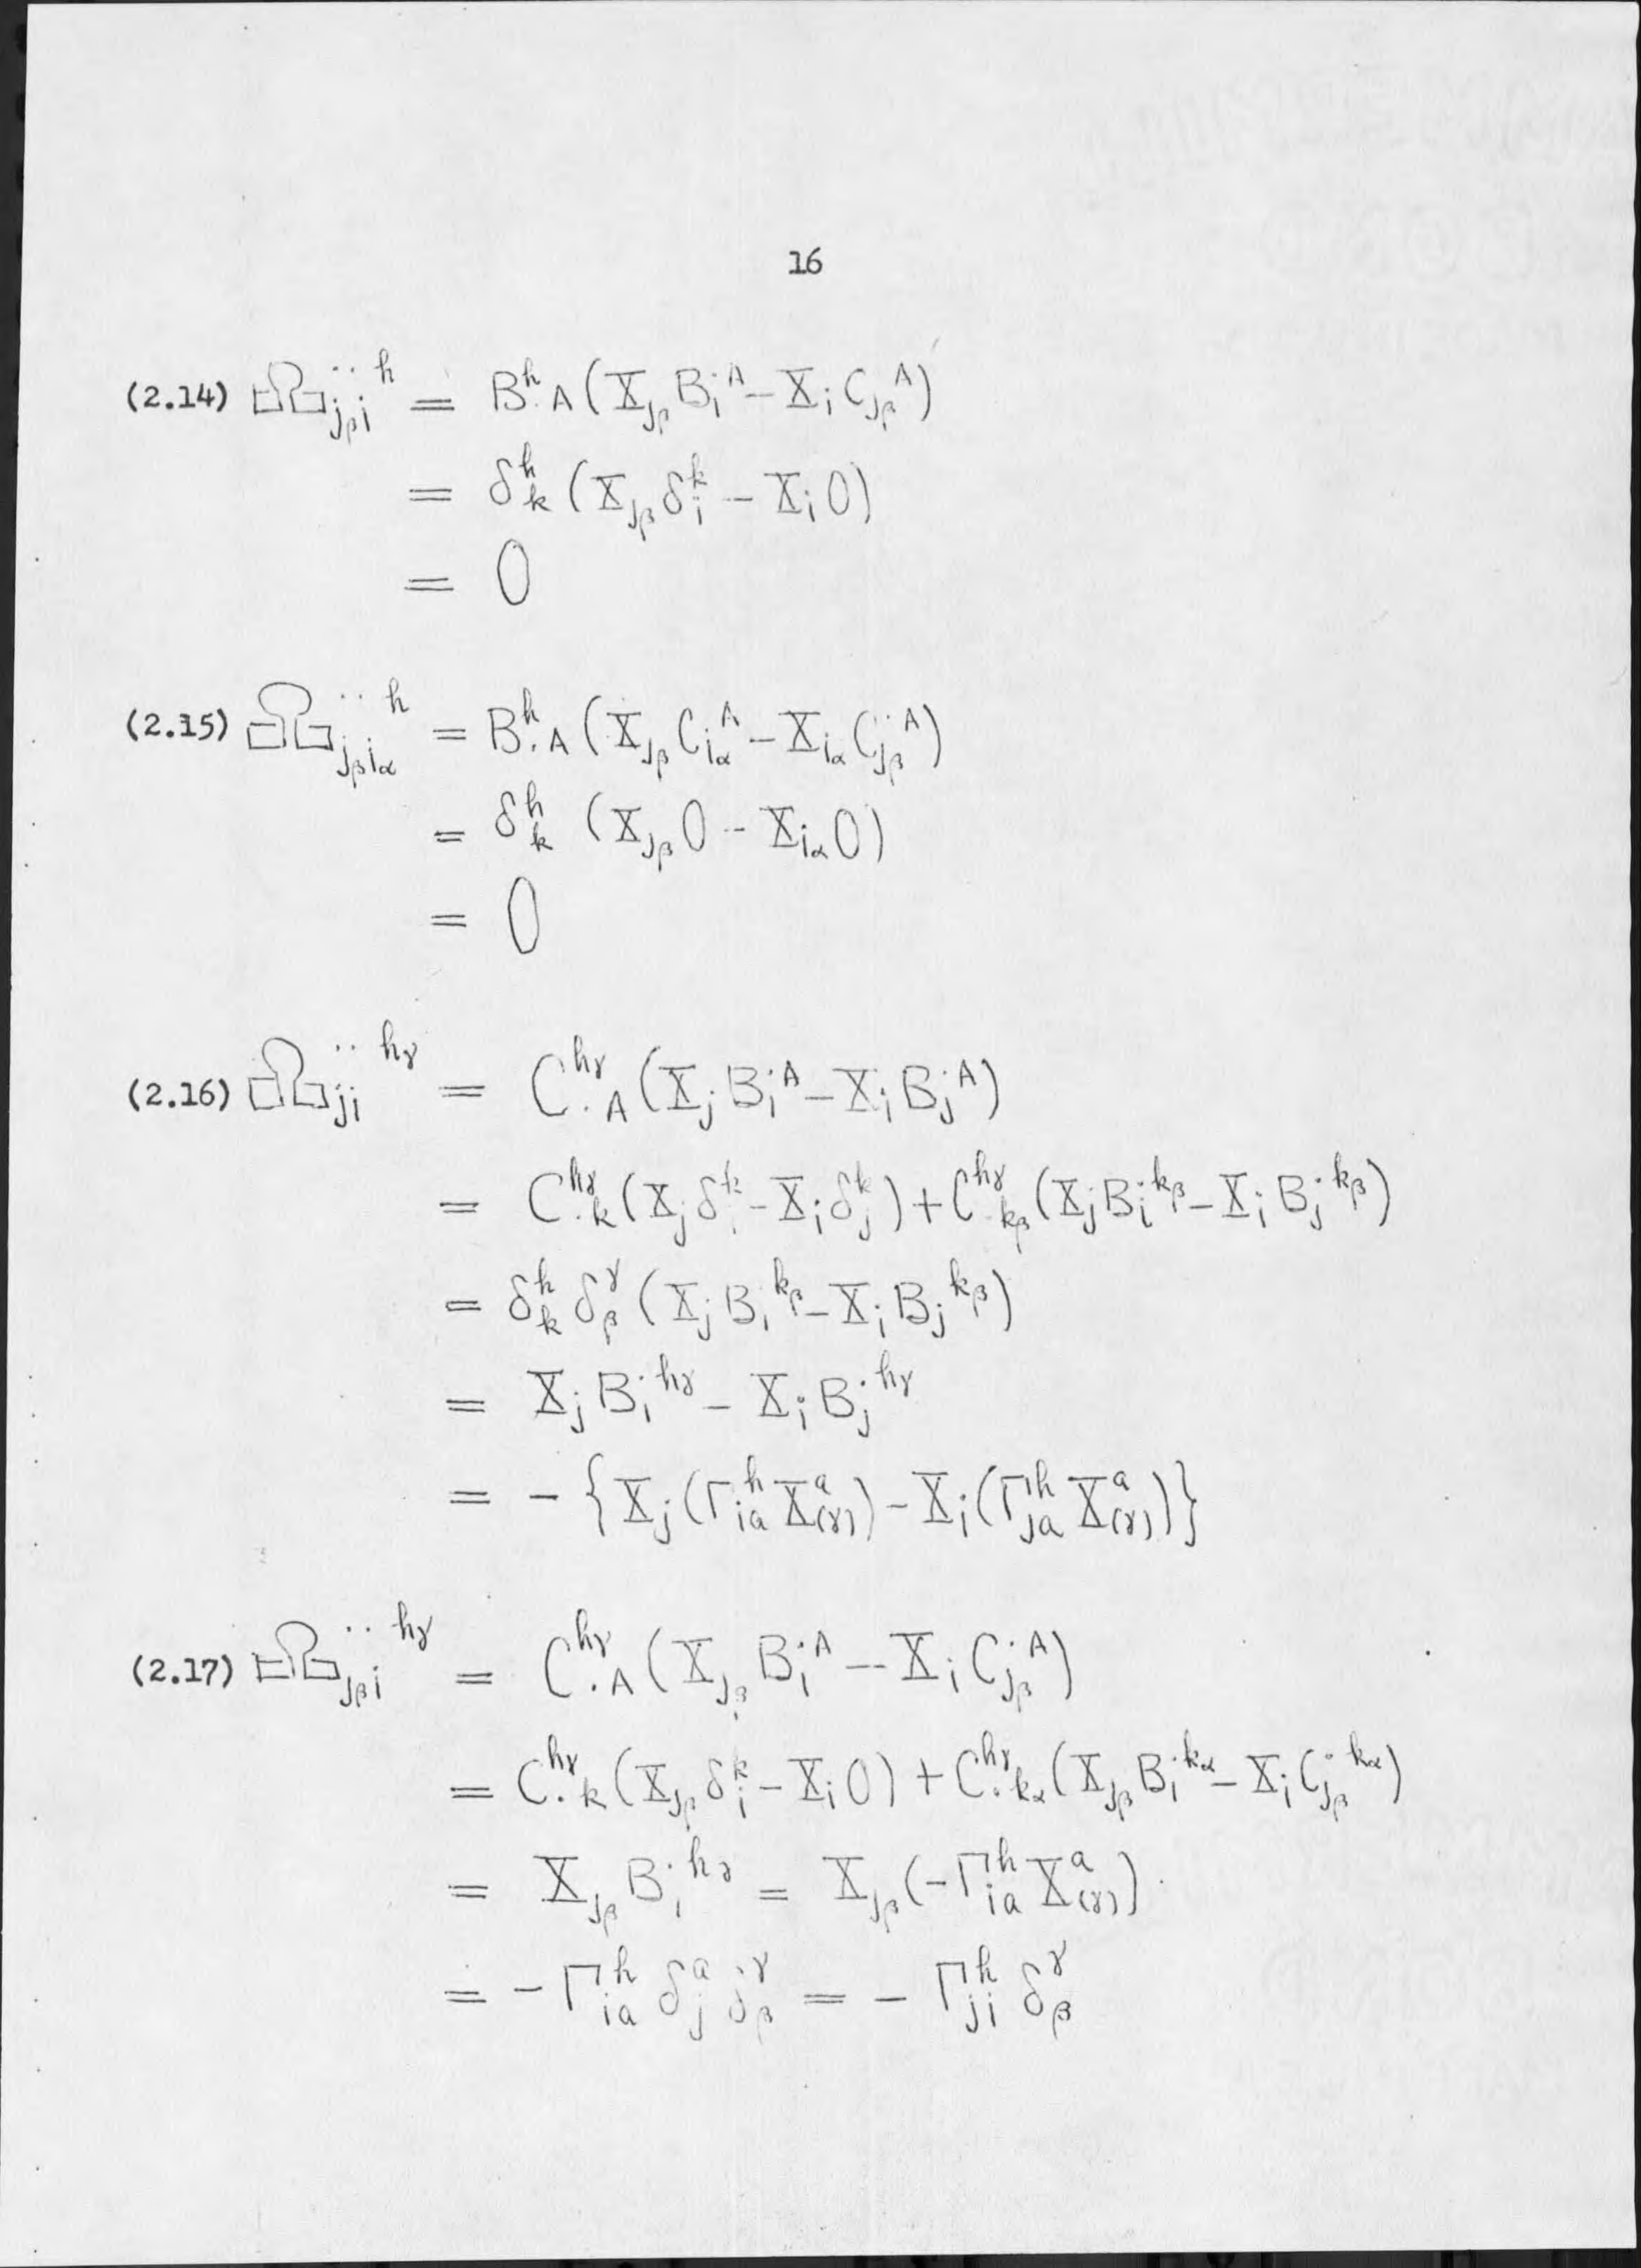 16
(2.14) Ω_{jβ i}^{··h} = B^h_{·A} (X_{jβ} B_i^{·A} − X_i C_{jβ}^{A})
= δ^h_k (X_{jβ} δ^k_i − X_i 0)
= 0
(2.15) Ω_{jβ iα}^{··h} = B^h_{·A} (X_{jβ} C_{iα}^{A} − X_{iα} C_{jβ}^{·A})
= δ^h_k (X_{jβ} 0 − X_{iα} 0)
= 0
(2.16) Ω_{ji}^{··hγ} = C^{hγ}_{·A} (X_j B_i^{·A} − X_i B_j^{·A})
= C^{hγ}_{·k} (X_j δ^k_i − X_i δ^k_j) + C^{hγ}_{·kβ} (X_j B_i^{·kβ} − X_i B_j^{·kβ})
= δ^h_k δ^γ_β (X_j B_i^{·kβ} − X_i B_j^{·kβ})
= X_j B_i^{·hγ} − X_i B_j^{·hγ}
= − {X_j (Γ^h_{ia} X^a_{(γ)}) − X_i (Γ^h_{ja} X^a_{(γ)})}
(2.17) Ω_{jβ i}^{··hγ} = C^{hγ}_{·A} (X_{jβ} B_i^{·A} − X_i C_{jβ}^{·A})
= C^{hγ}_{·k} (X_{jβ} δ^k_i − X_i 0) + C^{hγ}_{·kα} (X_{jβ} B_i^{·kα} − X_i C_{jβ}^{·kα})
= X_{jβ} B_i^{·hγ} = X_{jβ} (−Γ^h_{ia} X^a_{(γ)})
= − Γ^h_{ia} δ^a_j δ^γ_β = − Γ^h_{ji} δ^γ_β